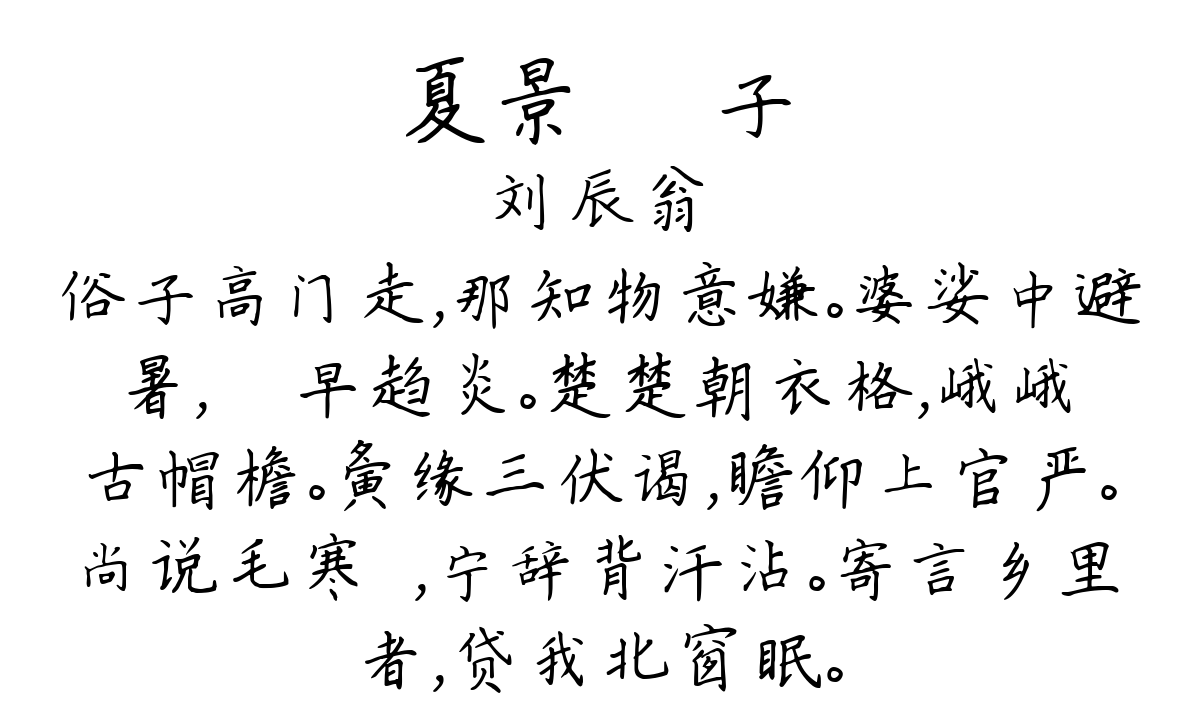 夏景 子
刘辰翁
俗子高门走,那知物意嫌。婆娑中避
暑, 早趋炎。楚楚朝衣格,峨峨
古帽檐。夤缘三伏谒,瞻仰上官严。
尚说毛寒 ,宁辞背汗沾。寄言乡里
者,贷我北窗眠。